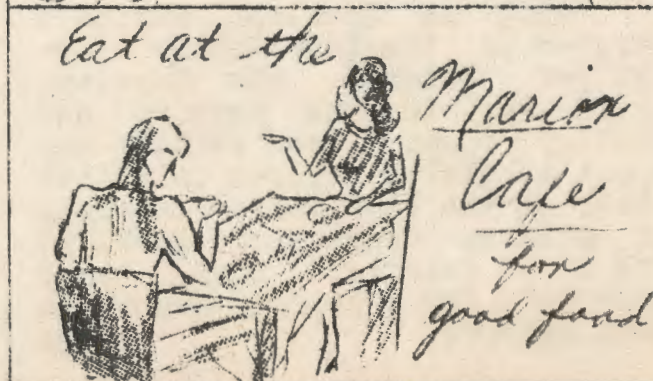 Eat at the
Marion
Cafe
for
good food